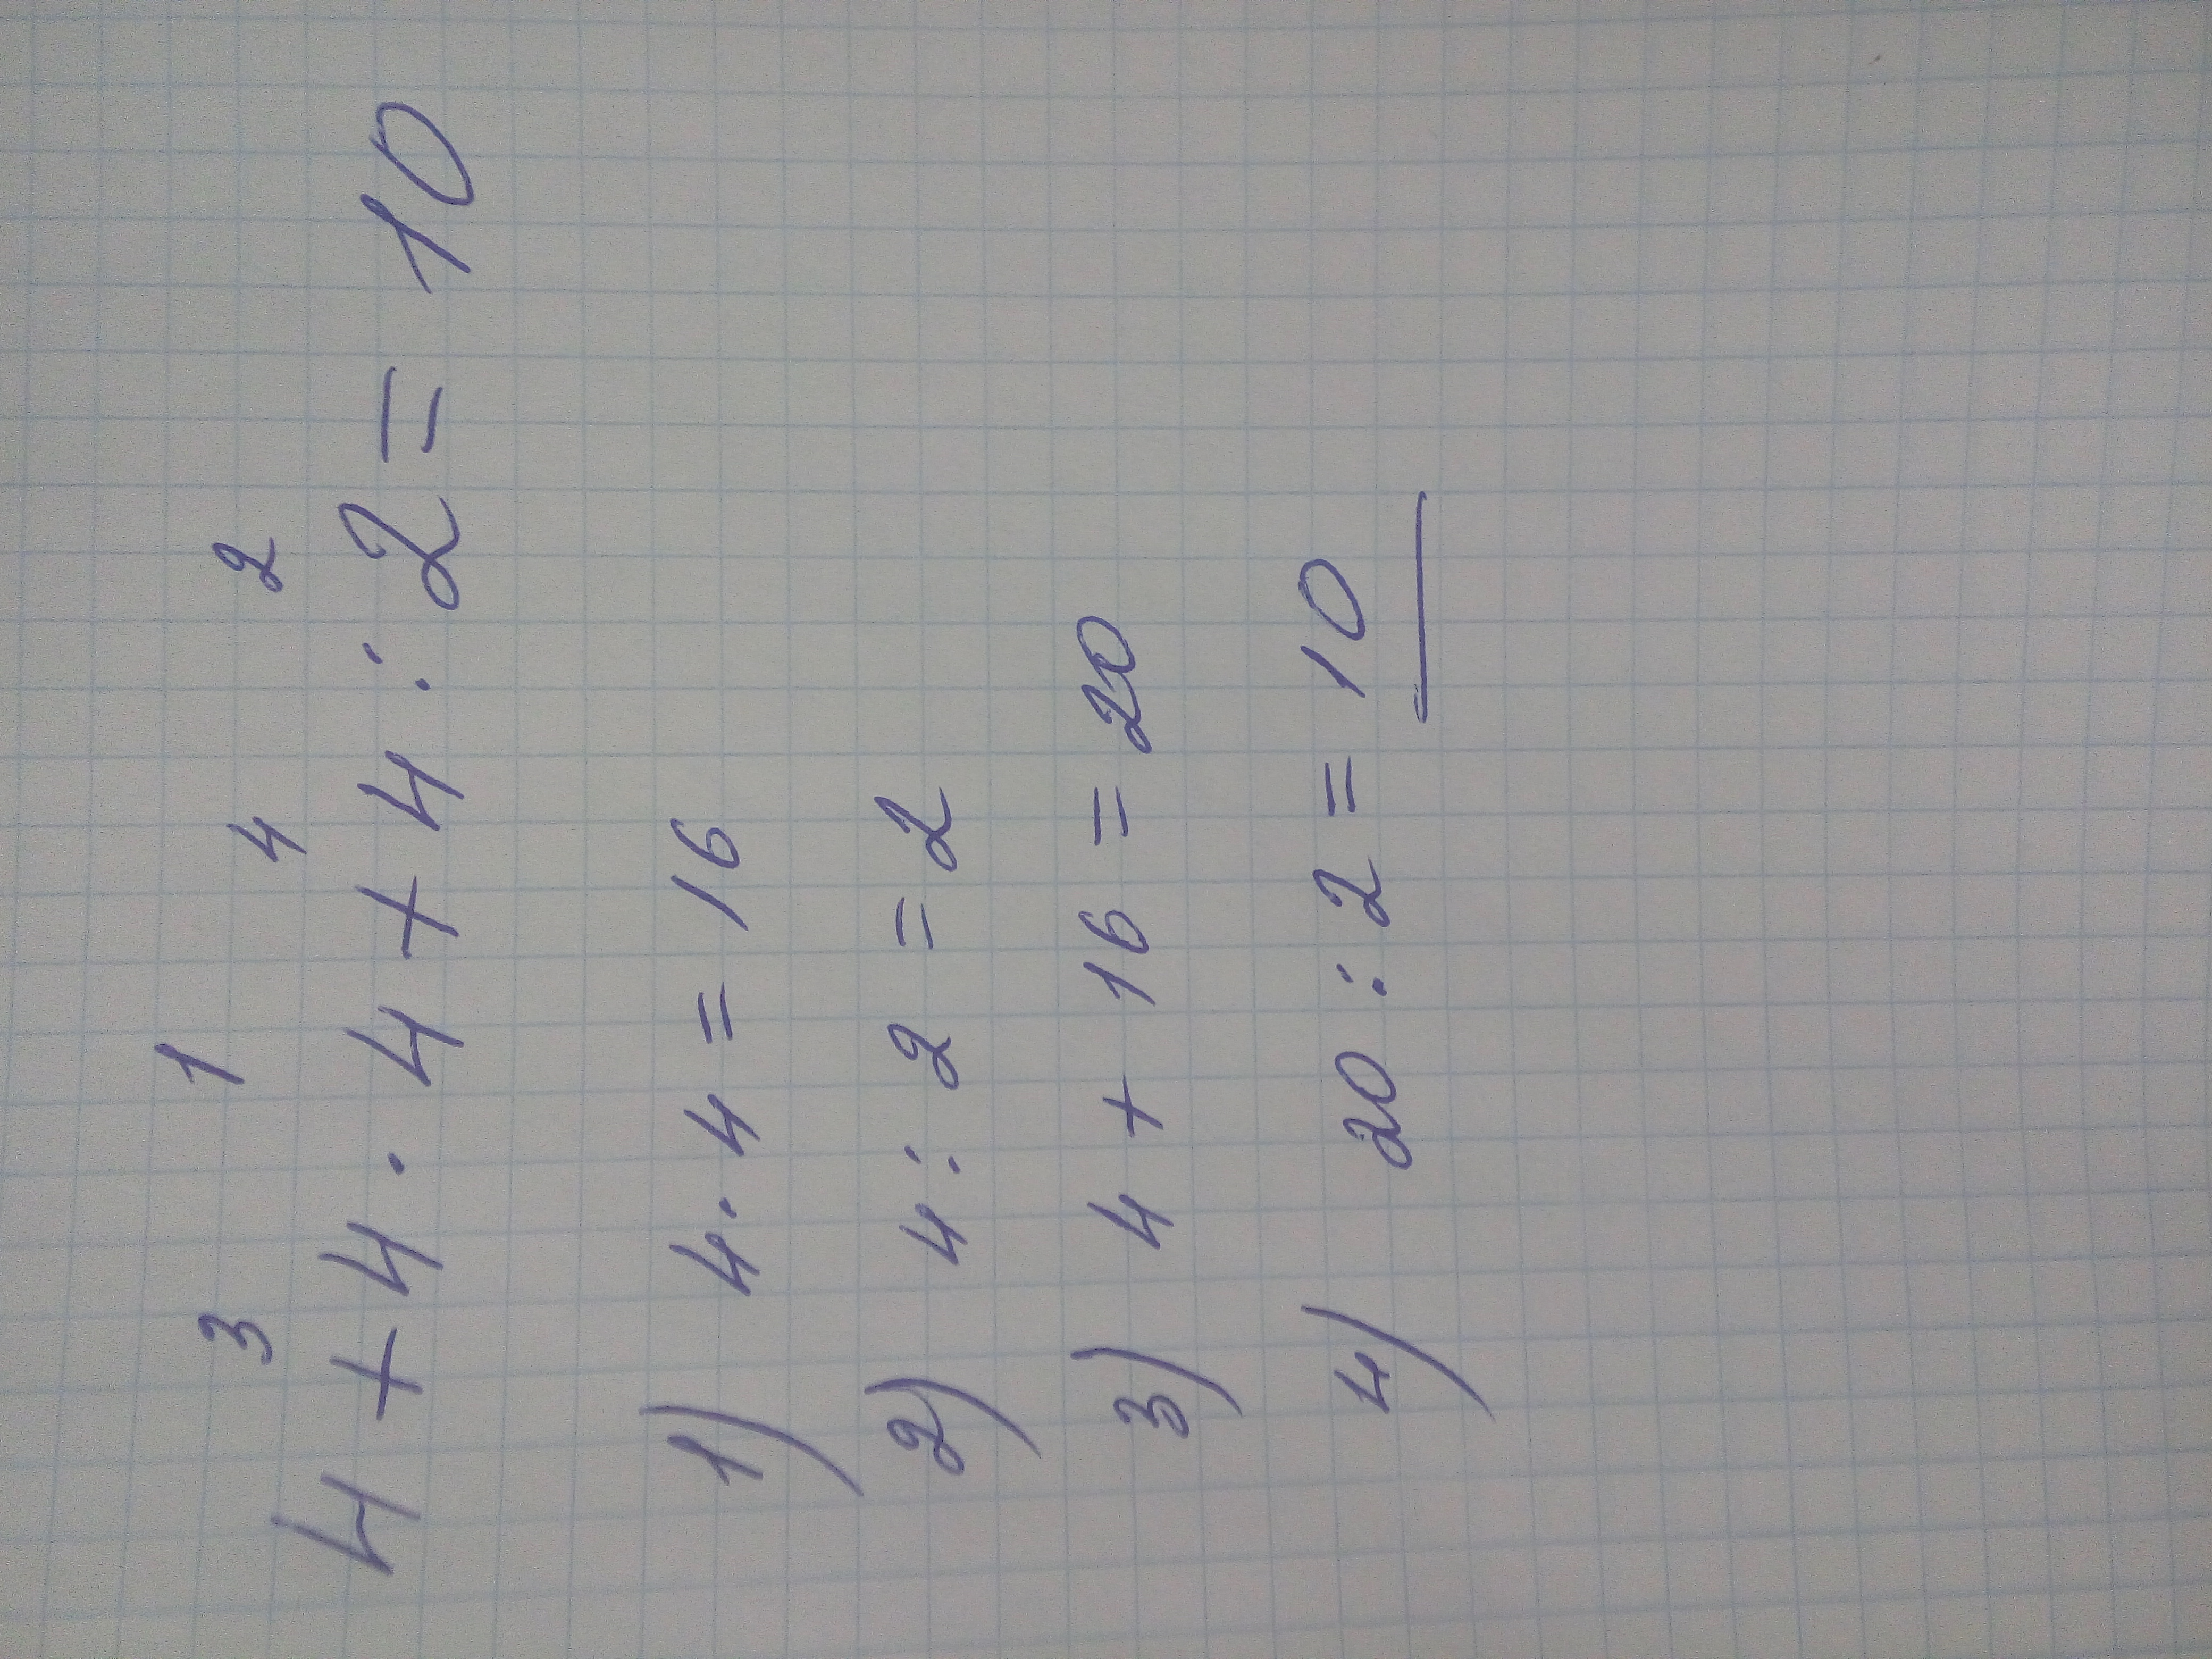 3 1 4 2
4 + 4 · 4 + 4 : 2 = 10
1) 4 · 4 = 16
2) 4 : 2 = 2
3) 4 + 16 = 20
4) 20 : 2 = 10